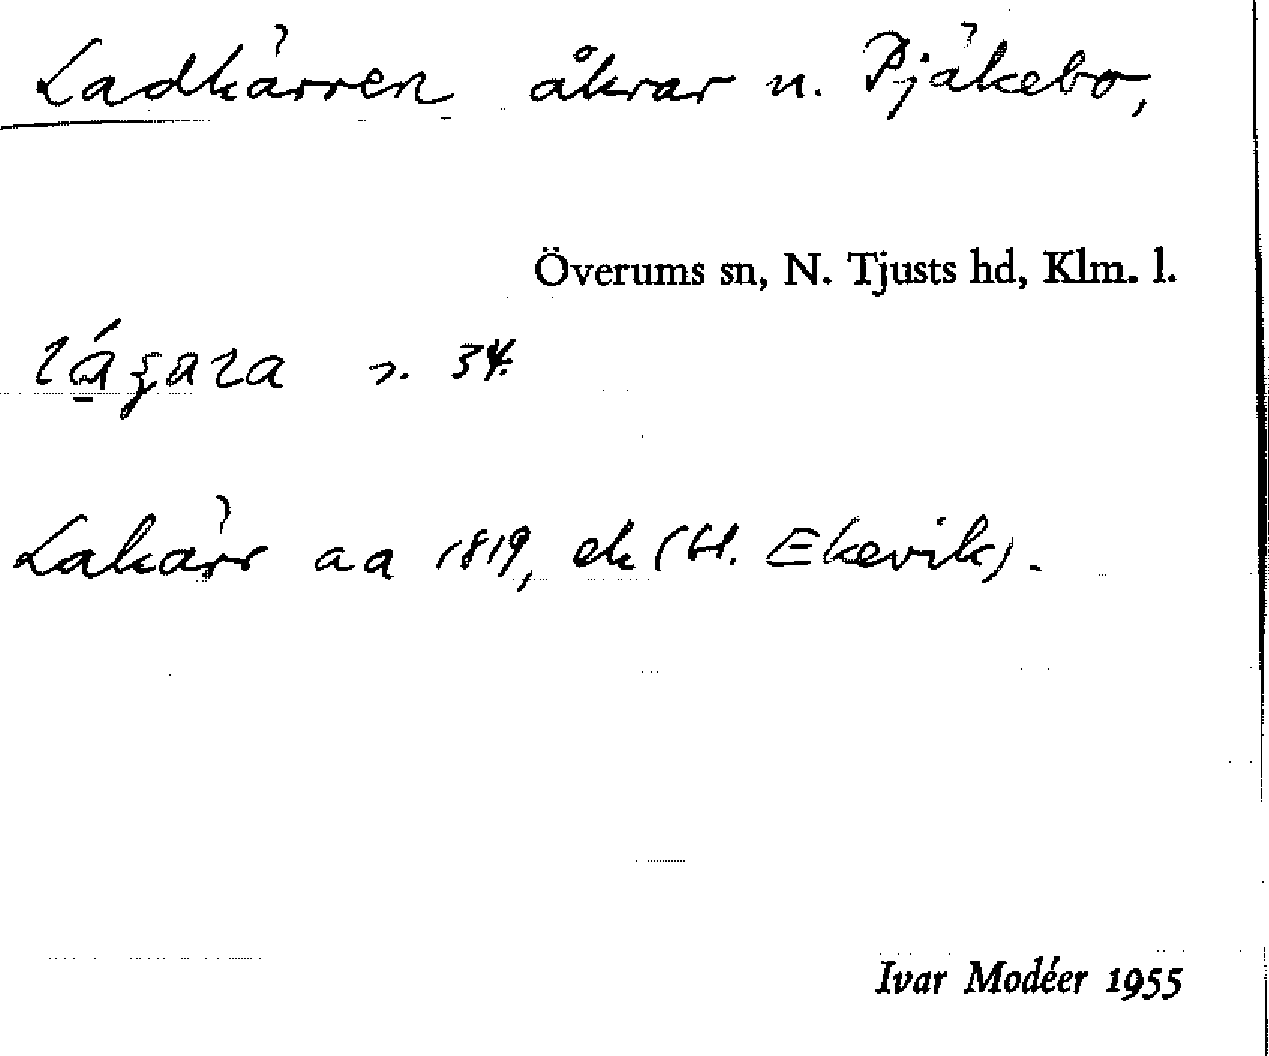 Ladkärren åkrar n. Pjäkebo,
Överums sn, N. Tjusts hd, Klm. l.
s. 34.
Lakärr aa 1819, ek (bl. Ekevik).
Ivar Modéer 1955